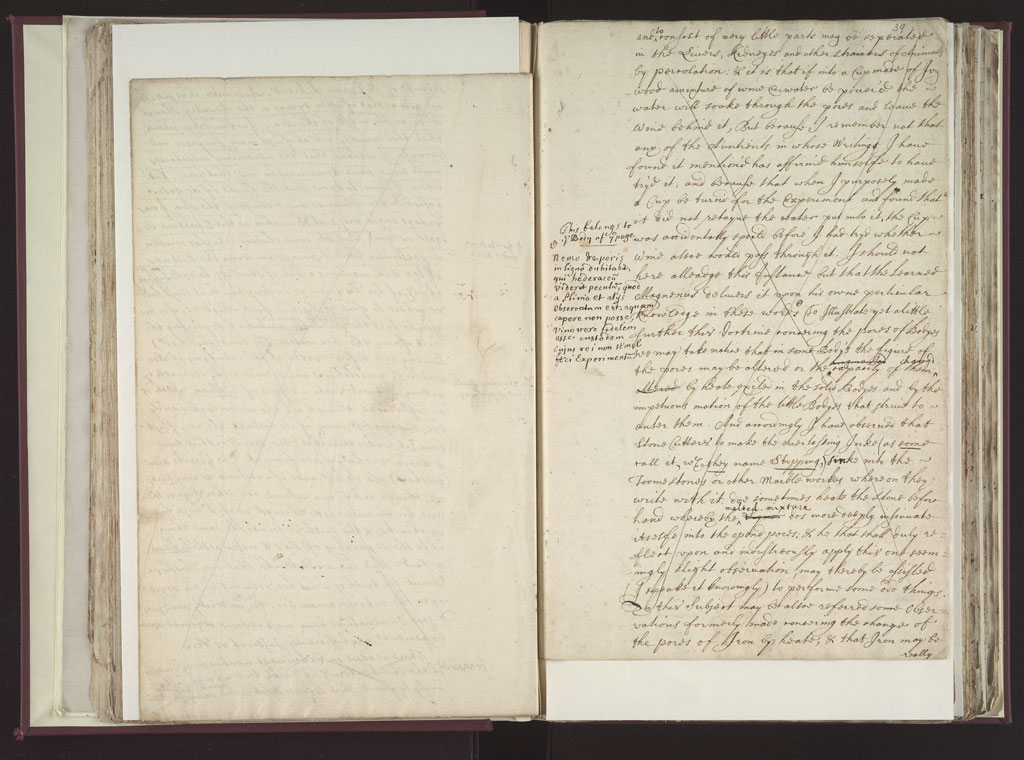 39
and to consist of very little parts may be seperated
in the Livers, Kidneyes and other strainers of Animals
by percolation. & it is that if into a Cup made of Ivy
wood a mixture of wine & water be poured the
water will soake through the pores and leave the
wine behind it, But because I remember not that
any of the Auntients in whose Writings I have
found it mention'd has affirm'd himselfe to have
try'd it, and because that when I purposely made
a Cup be turn'd for the Experiment and found that
it did not retayne the water put into it, the Cup
was accidentally spoild before I had try'd whether
wine alsoe would pass through it. I should not
here alleadge this Instance, but that the Learned
Magnenus delivers it upon his owne particular
Knowledge in these words To Illustrate yet a little
further this doctrine concerning the pores of Bodyes
we may take notice that in some Bodys the figure of
the pores may be altered or the capacity of them changd
by heate exited in the solid Bodyes and by the
impetuous motion of the little Bodyes that strive to
enter them. And accordingly I have observed that
Stone Cutters to make the everlasting Inke (as some
call it, wch they name Stopping,) sinke into the
Toomestones or other Marble workes whereon they
write with it, doe sometimes heate the stone before
hand whereby the melted mixture dos more deeply insinuate
itselfe into the opend pores; & he that shall duly re=
flect upon and industreously apply this one seem=
ingly slight observation, may thereby be assisted
(I speake it knowingly) to performe some odd things.
To this Subject may be alsoe referred some Obser=
vations formerly made concerning the change of
the pores of Iron by heate, & that Iron may be
really
This belongs to
ye Body of ys page
Nemo de poris
in ligno dubitabit,
qui hederaceu
viderit poculu, quod
a Plinio et alijs
Observatum est, aquam
capere non posse,
Vino vero fidelem
esse custodem
Cujus rei non semel
feci Experimentu